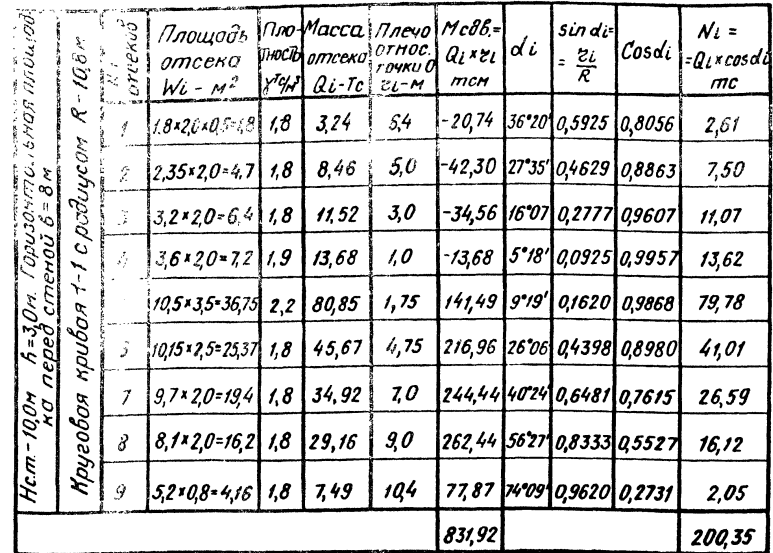 Нст.-10,0м h=3,0м. Горизонтальная площад-
ка перед стеной в=8м
Круговая кривая 1-1 с радиусом R-10,8м
№ отсеков | Площадь отсека Wi - м² | Плотность γ тс/м³ | Масса отсека Qi-Тс | Плечо относ. точки О ri-м | Мсдв.= Qi×ri тсм | di | sin di= = ri/R | Cosdi | Ni = =Qi×cosdi тс
1 | 1.8×2,0×0,5=1,8 | 1,8 | 3,24 | 6,4 | -20,74 | 36°20' | 0,5925 | 0,8056 | 2,61
2 | 2,35×2,0=4,7 | 1,8 | 8,46 | 5,0 | -42,30 | 27°35' | 0,4629 | 0,8863 | 7,50
3 | 3,2×2,0=6,4 | 1,8 | 11,52 | 3,0 | -34,56 | 16°07 | 0,2777 | 0,9607 | 11,07
4 | 3,6×2,0=7,2 | 1,9 | 13,68 | 1,0 | -13,68 | 5°18' | 0,0925 | 0,9957 | 13,62
10,5×3,5=36,75 | 2,2 | 80,85 | 1,75 | 141,49 | 9°19' | 0,1620 | 0,9868 | 79,78
6 | 10,15×2,5=25,37 | 1,8 | 45,67 | 4,75 | 216,96 | 26°06 | 0,4398 | 0,8980 | 41,01
7 | 9,7×2,0=19,4 | 1,8 | 34,92 | 7,0 | 244,44 | 40°24' | 0,6481 | 0,7615 | 26,59
8 | 8,1×2,0=16,2 | 1,8 | 29,16 | 9,0 | 262,44 | 56°27' | 0,8333 | 0,5527 | 16,12
9 | 5,2×0,8=4,16 | 1,8 | 7,49 | 10,4 | 77,87 | 74°09' | 0,9620 | 0,2731 | 2,05
831,92 | 200,35